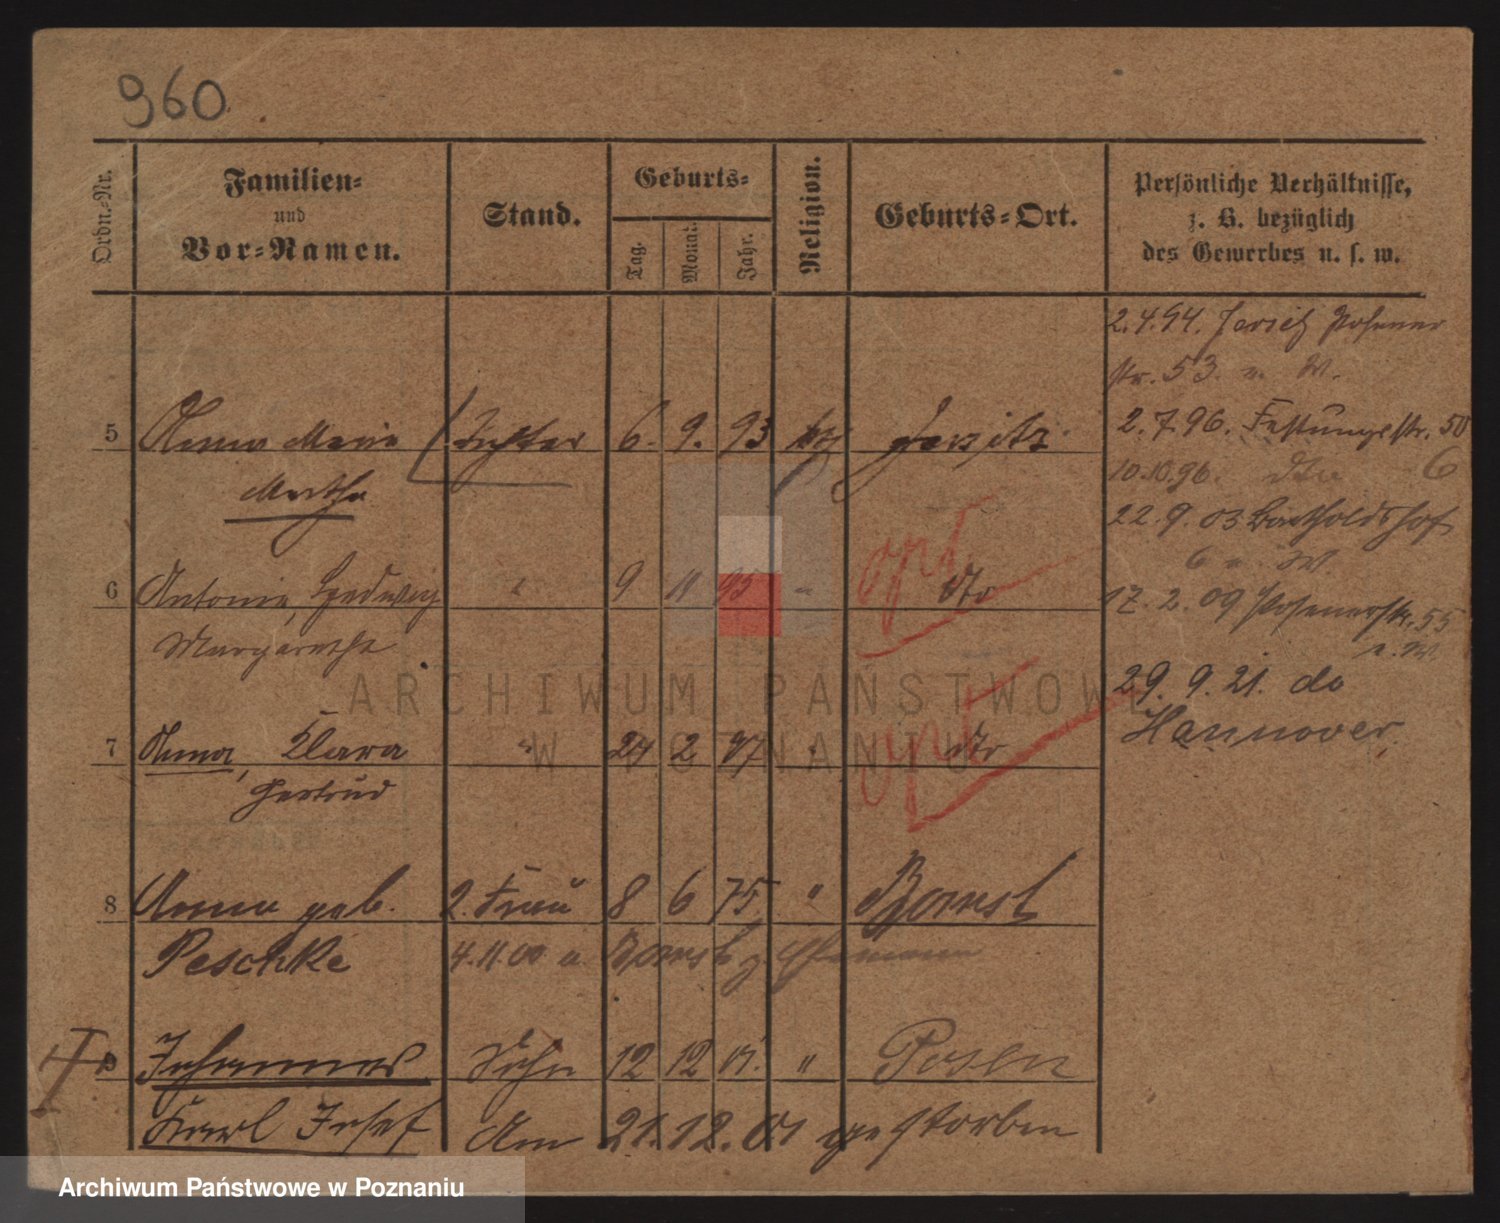 960.
Ordn.-Nr.
Familien-
und
Vor-Namen.
Stand.
Geburts-
Tag.
Monat.
Jahr.
Religion.
Geburts-Ort.
Persönliche Verhältnisse,
z. B. bezüglich
des Gewerbes u. s. w.
2.4.94. Jersitz Posener
str. 53. u. W.
5 Anna Maria Tochter 6. 9. 93 Jersitz
2.7.96. Festungsstr. 50
Martha
10.10.96. dto 6
22.9.03 Bartholdshof
6 u. W
6 Antonie, Hedwig " 9 11 95 " dto
17.2.09 Posenerstr. 55
u. W.
Margarethe
opt
29.9.21. do
Hannover.
7 Anna, Clara " 24 2 97 " dto
Gertrud
opt
8 Anna geb. 2. Frau 8 6 75 " Bomst
Peschke 4.11.00 a Bomst Ehemann
Johannes Sohn 12 12 01. " Posen
Karl Josef Am 21.12.01 gestorben
ARCHIWUM PAŃSTWOWE
W POZNANIU
Archiwum Państwowe w Poznaniu